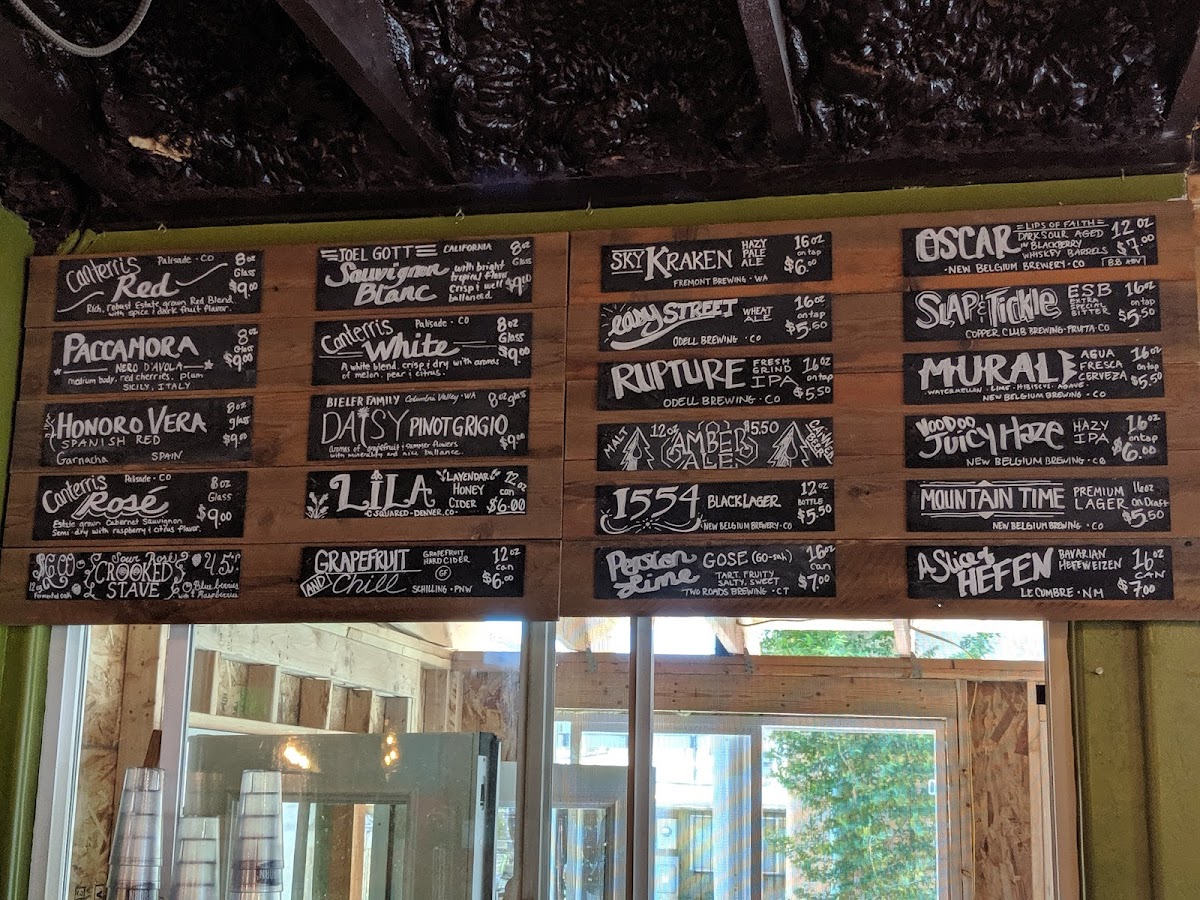 Canterris Palisade · CO
Red
Rich, robust Estate grown Red Blend
with spice & dark fruit flavor.
8oz
Glass
$9.00
PACCAMORA
NERO D'AVOLA
medium body, red cherries, plum
SICILY, ITALY
8oz
Glass
$9.00
HONORO VERA
SPANISH RED
Garnacha SPAIN
8oz
glass
$9.00
Canterris Palisade · CO
Rosé
Estate grown Cabernet Sauvignon
Semi-dry with raspberry & citrus flavor.
8oz
Glass
$9.00
$6.00 Sour Rosé 4.5%
CROOKED
STAVE
Blueberries
& Raspberries
JOEL GOTT CALIFORNIA
Sauvignon
Blanc
with bright
tropical flavor
Crisp & well
ballanced.
8oz
Glass
$9.00
Canterris Palisade · CO
White
A white blend, crisp & dry with aromas
of melon, pear & citrus.
8oz
Glass
$9.00
BIELER FAMILY Columbia Valley · WA
DAISY PINOT GRIGIO
aromas of grapefruit & summer flowers
with minerality and nice ballance.
8oz glass
$9.00
LILA
C SQUARED · DENVER, CO
LAVENDAR
HONEY
CIDER
12oz
can
$6.00
GRAPEFRUIT
AND Chill
GRAPEFRUIT
HARD CIDER
GF
SCHILLING · PNW
12oz
can
$6.00
SKY KRAKEN
HAZY
PALE
ALE
FREMONT BREWING · WA
16oz
on tap
$6.00
easy STREET
WHEAT
ALE
ODELL BREWING · CO
16oz
on tap
$5.50
RUPTURE
FRESH
GRIND
IPA
ODELL BREWING · CO
16oz
on tap
$5.50
MALT 12oz $5.50
AMBER
ALE
1554 BLACK LAGER
NEW BELGIUM BREWERY · CO
12oz
BOTTLE
$5.50
Persian
Lime
GOSE (GO-suh)
TART, FRUITY
SALTY, SWEET
TWO ROADS BREWING · CT
16oz
can
$7.00
OSCAR
LIPS OF FAITH
DARK SOUR AGED
IN BLACKBERRY
WHISKEY BARRELS
NEW BELGIUM BREWERY · CO
12oz
$7.00
8.8 ABV
SLAP & TICKLE
ESB
EXTRA
SPECIAL
BITTER
COPPER CLUB BREWING · FRUITA · CO
16oz
on tap
$5.50
MURAL
AGUA
FRESCA
CERVEZA
WATERMELON · LIME · HIBISCUS · AGAVE
NEW BELGIUM BREWING · CO
16oz
on tap
$5.50
VOODOO
JUICY HAZE
HAZY
IPA
NEW BELGIUM BREWING · CO
16oz
on tap
$6.00
MOUNTAIN TIME
PREMIUM
LAGER
NEW BELGIUM BREWING · CO
16oz
on Draft
$5.50
A Slice of
HEFEN
BAVARIAN
HEFEWEIZEN
LE CUMBRE · NM
16oz
CAN
$7.00